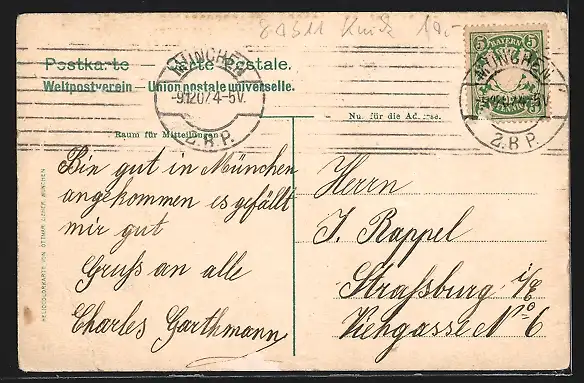 Postkarte — Carte postale.
Weltpostverein — Union postale universelle.
MÜNCHEN
4-5V.
Z.B.P.
5 BAYERN 5
MÜNCHEN
Z.B.P.
Nu. für die Adresse.
Raum für Mitteilungen
Bin gut in München
angekommen es gefällt
mir gut
Gruß an alle
Charles Garthmann
Herrn
J. Rappel
Straßburg i/E
Viehgasse No 6